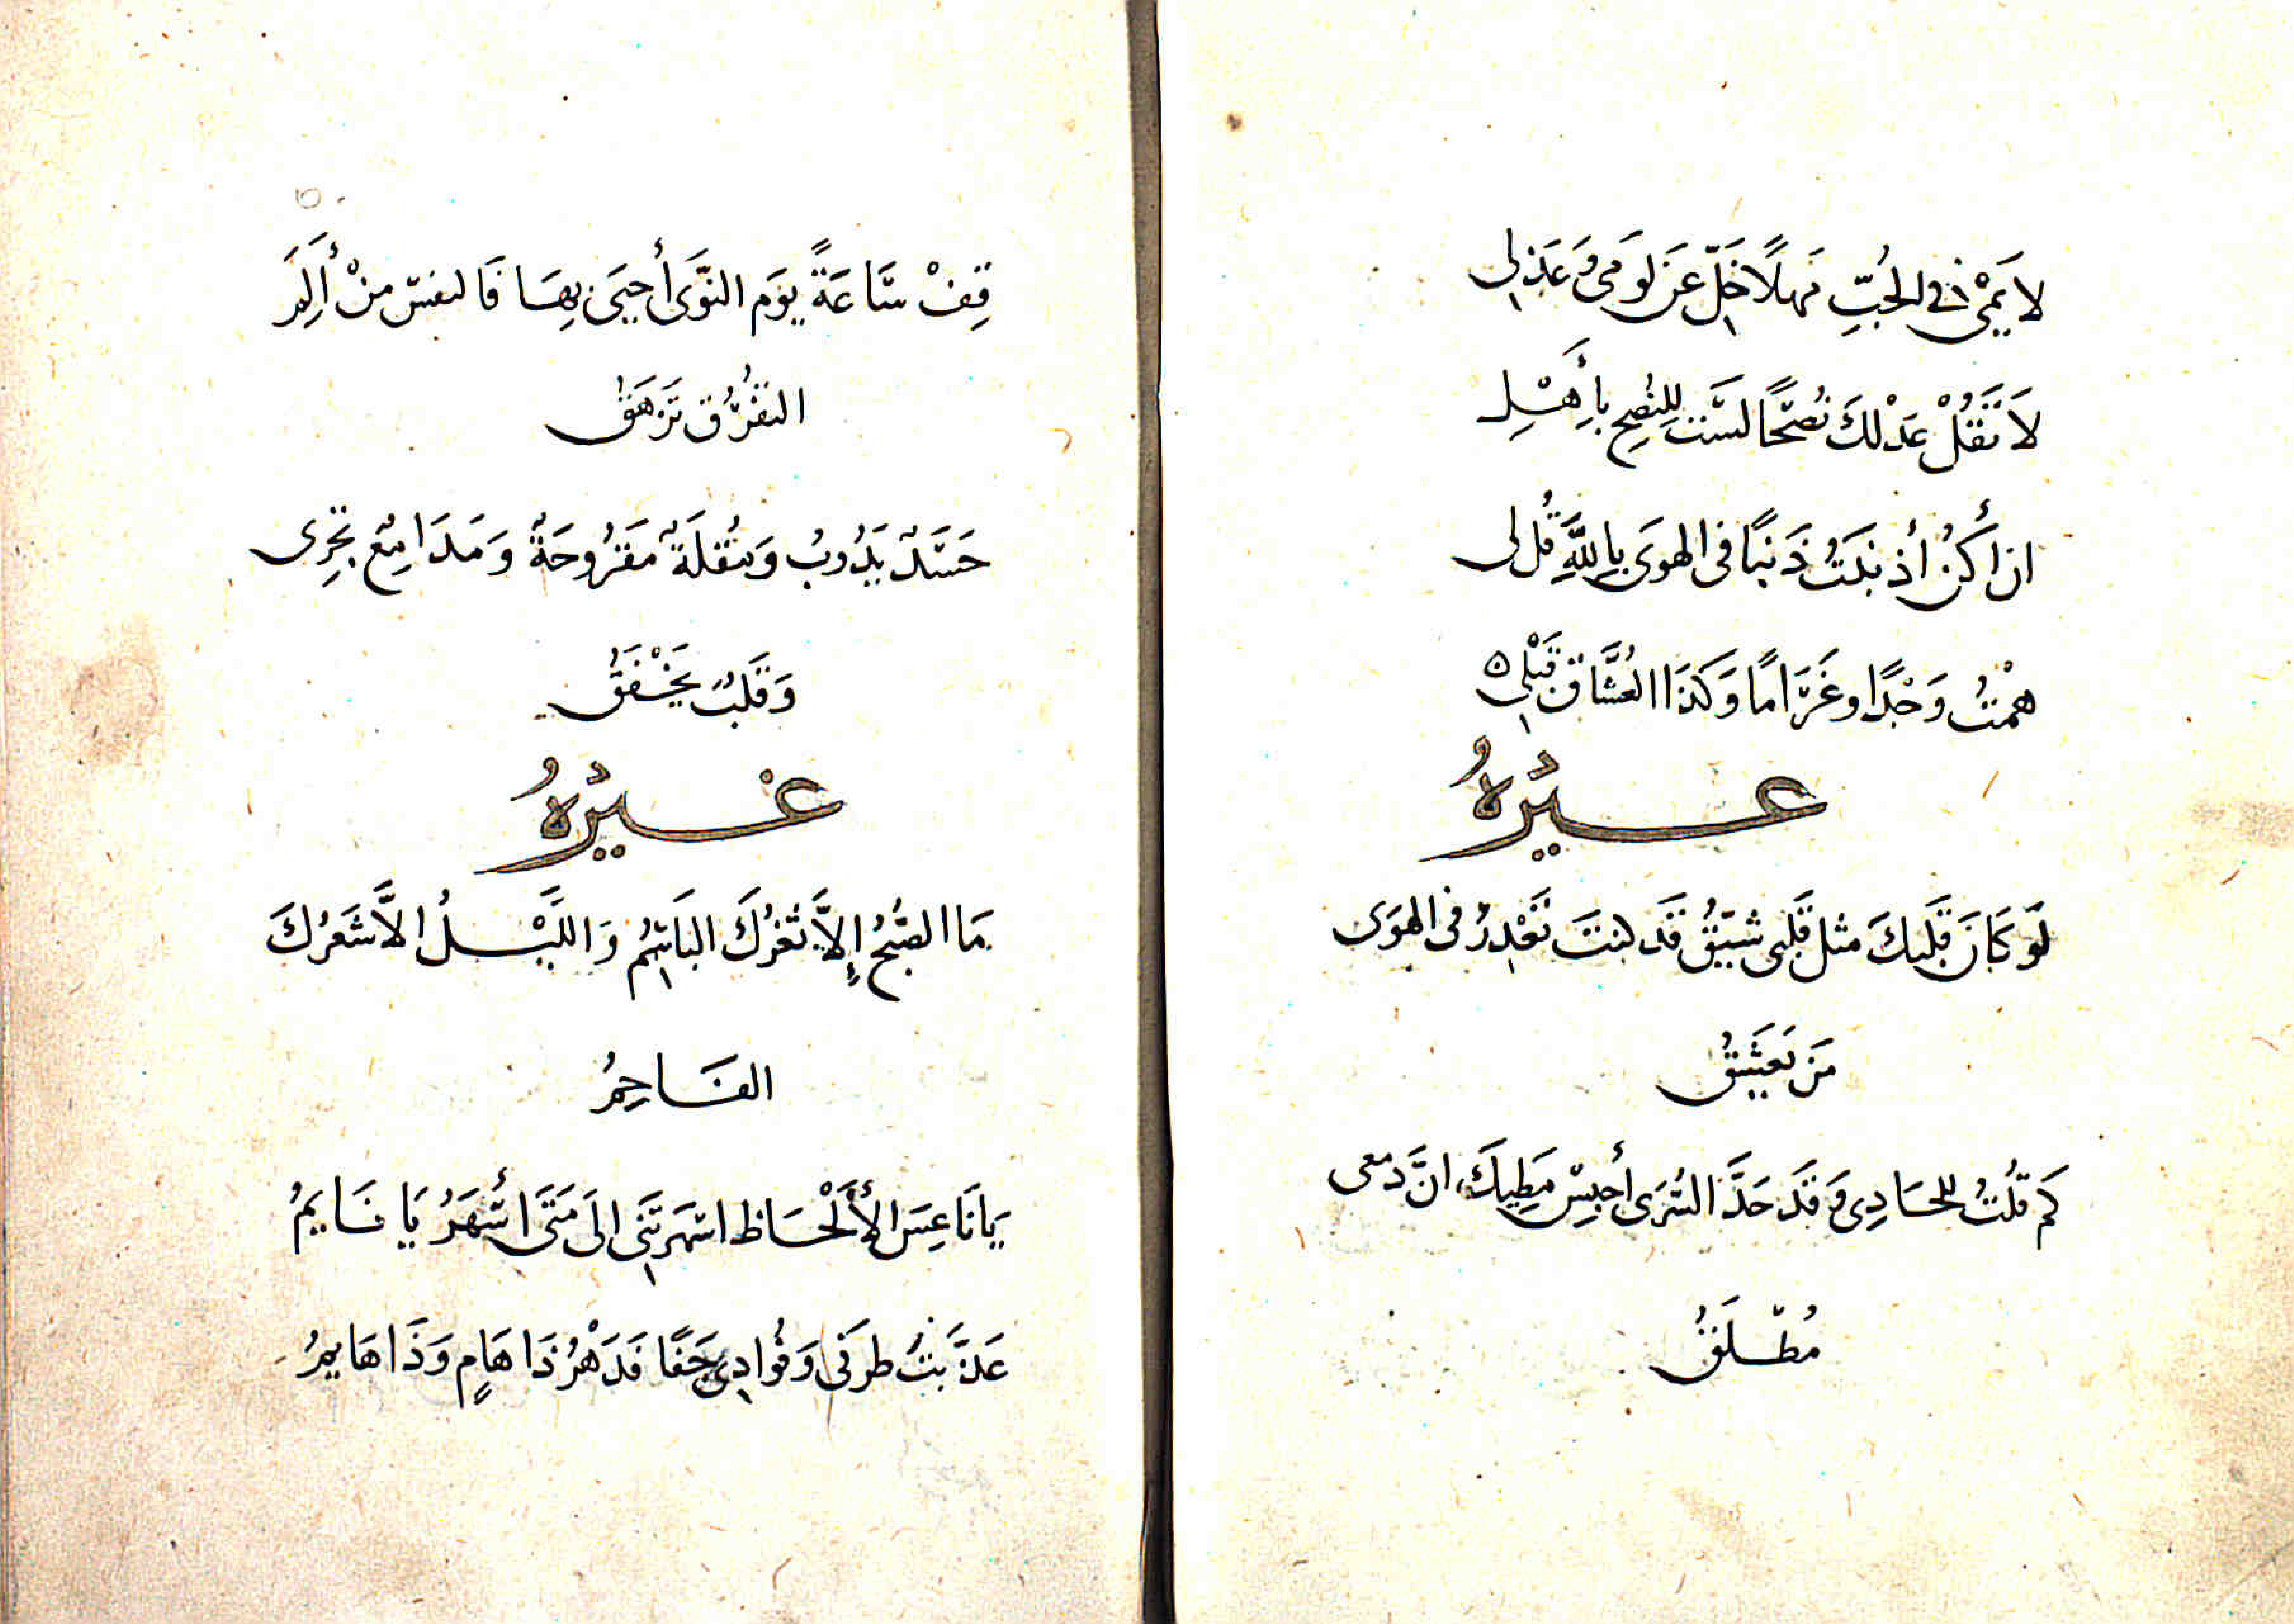 لَا يَمِىْ فى الحُبِّ مَهلًا خَلِّ عَن لَومى وَعَذلِى
لَا تَقُلْ عَذْلكَ نُصْحًا لَسْتَ لِلنُصحِ بِأَهْلِ
ان أَكُنْ أذنَبتُ ذَنبًا فى الهوَى بِاللَّهِ قُل لى
هِمْتُ وَجْدًا وغَرَامًا وَكَذَا العُشَّاق قَبْلِى ٥
غيْرُهُ
لَو كَانَ قَلبكَ مثل قَلبى شَيِّقُ قَد كنتَ تَعْذِرُ فى الهوَى
مَن يَعشَقُ
كَم قُلتُ للحَادِى وَقَد جَدَّ السُرَى أحبِسْ مَطِيكَ ان دَمعى
مُطْلَقُ
قِفْ سَاعَةً يَوم النَّوَى أحيَى بِهَا فَالنفسُ مِنْ أَلَمِ
التفَرُّقِ تَزهَقُ
جَسَدٌ يَذُوبُ وَمُقلَةٌ مَقرُوحَةٌ وَمَدَامِعٌ تجرِى
وَقَلبٌ يَخْفقُ
غيْرُهُ
مَا الصُبحُ إِلَّا ثَغرُكَ البَاسِمُ وَاللَّيْلُ الَّا شَعرُكَ
الفَاحِمُ
يَا نَاعِسَ الأَلْحَاظ اسهَرتَنِى الَى مَتَى اَسْهَرُ يَا نَايمُ
عَذَّبتَ طرفى وَفُوادِى جَفًا فَدَهْرُ ذَا هَامٍ وَذَا هَايمُ